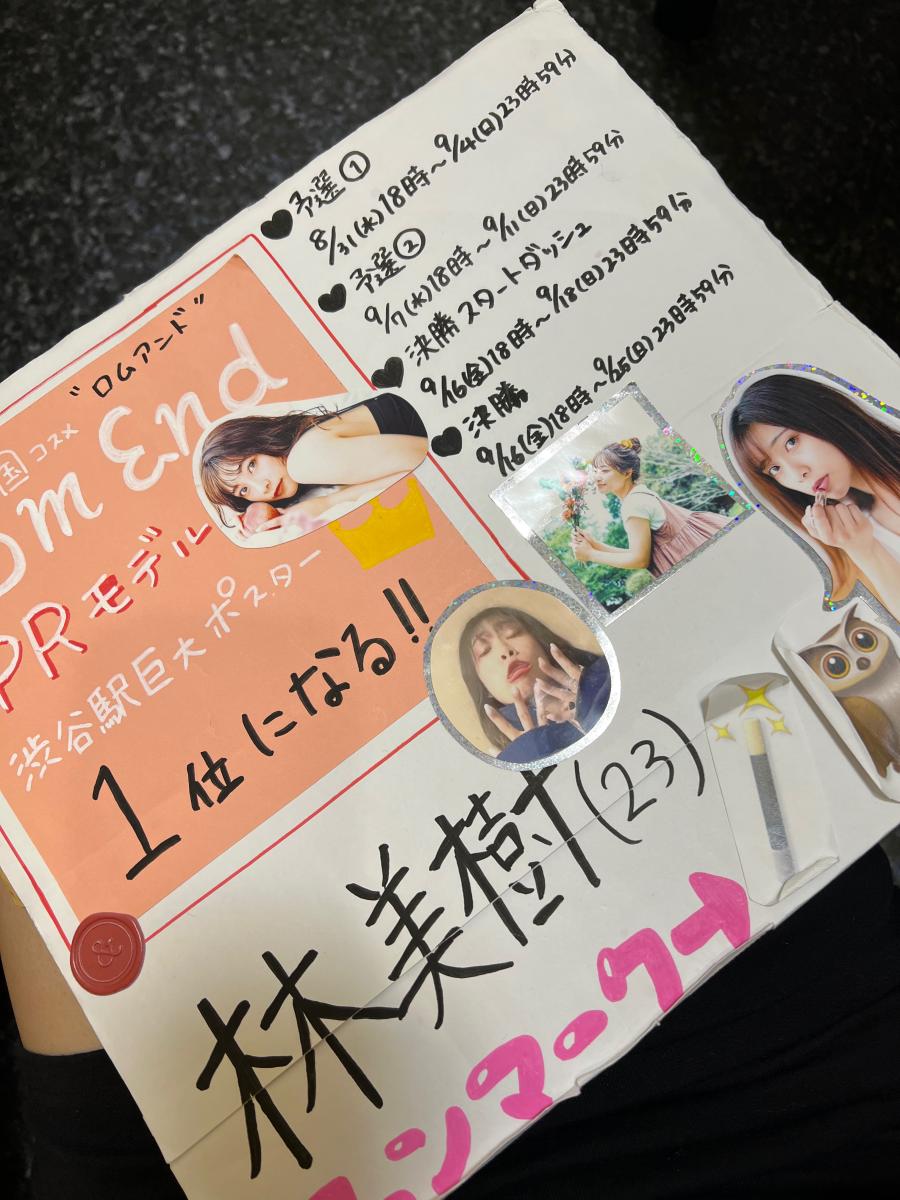 ♥予選①
8/31(水)18時～9/4(日)23時59分
♥予選②
9/7(水)18時～9/11(日)23時59分
♥決勝スタートダッシュ
9/16(金)18時～9/18(日)23時59分
♥決勝
9/16(金)18時～9/25(日)23時59分
"ロムアンド"
国コスメ
om End
PRモデル
渋谷駅巨大ポスター
1位になる!!
林美樹(23)
ンマーク→
&